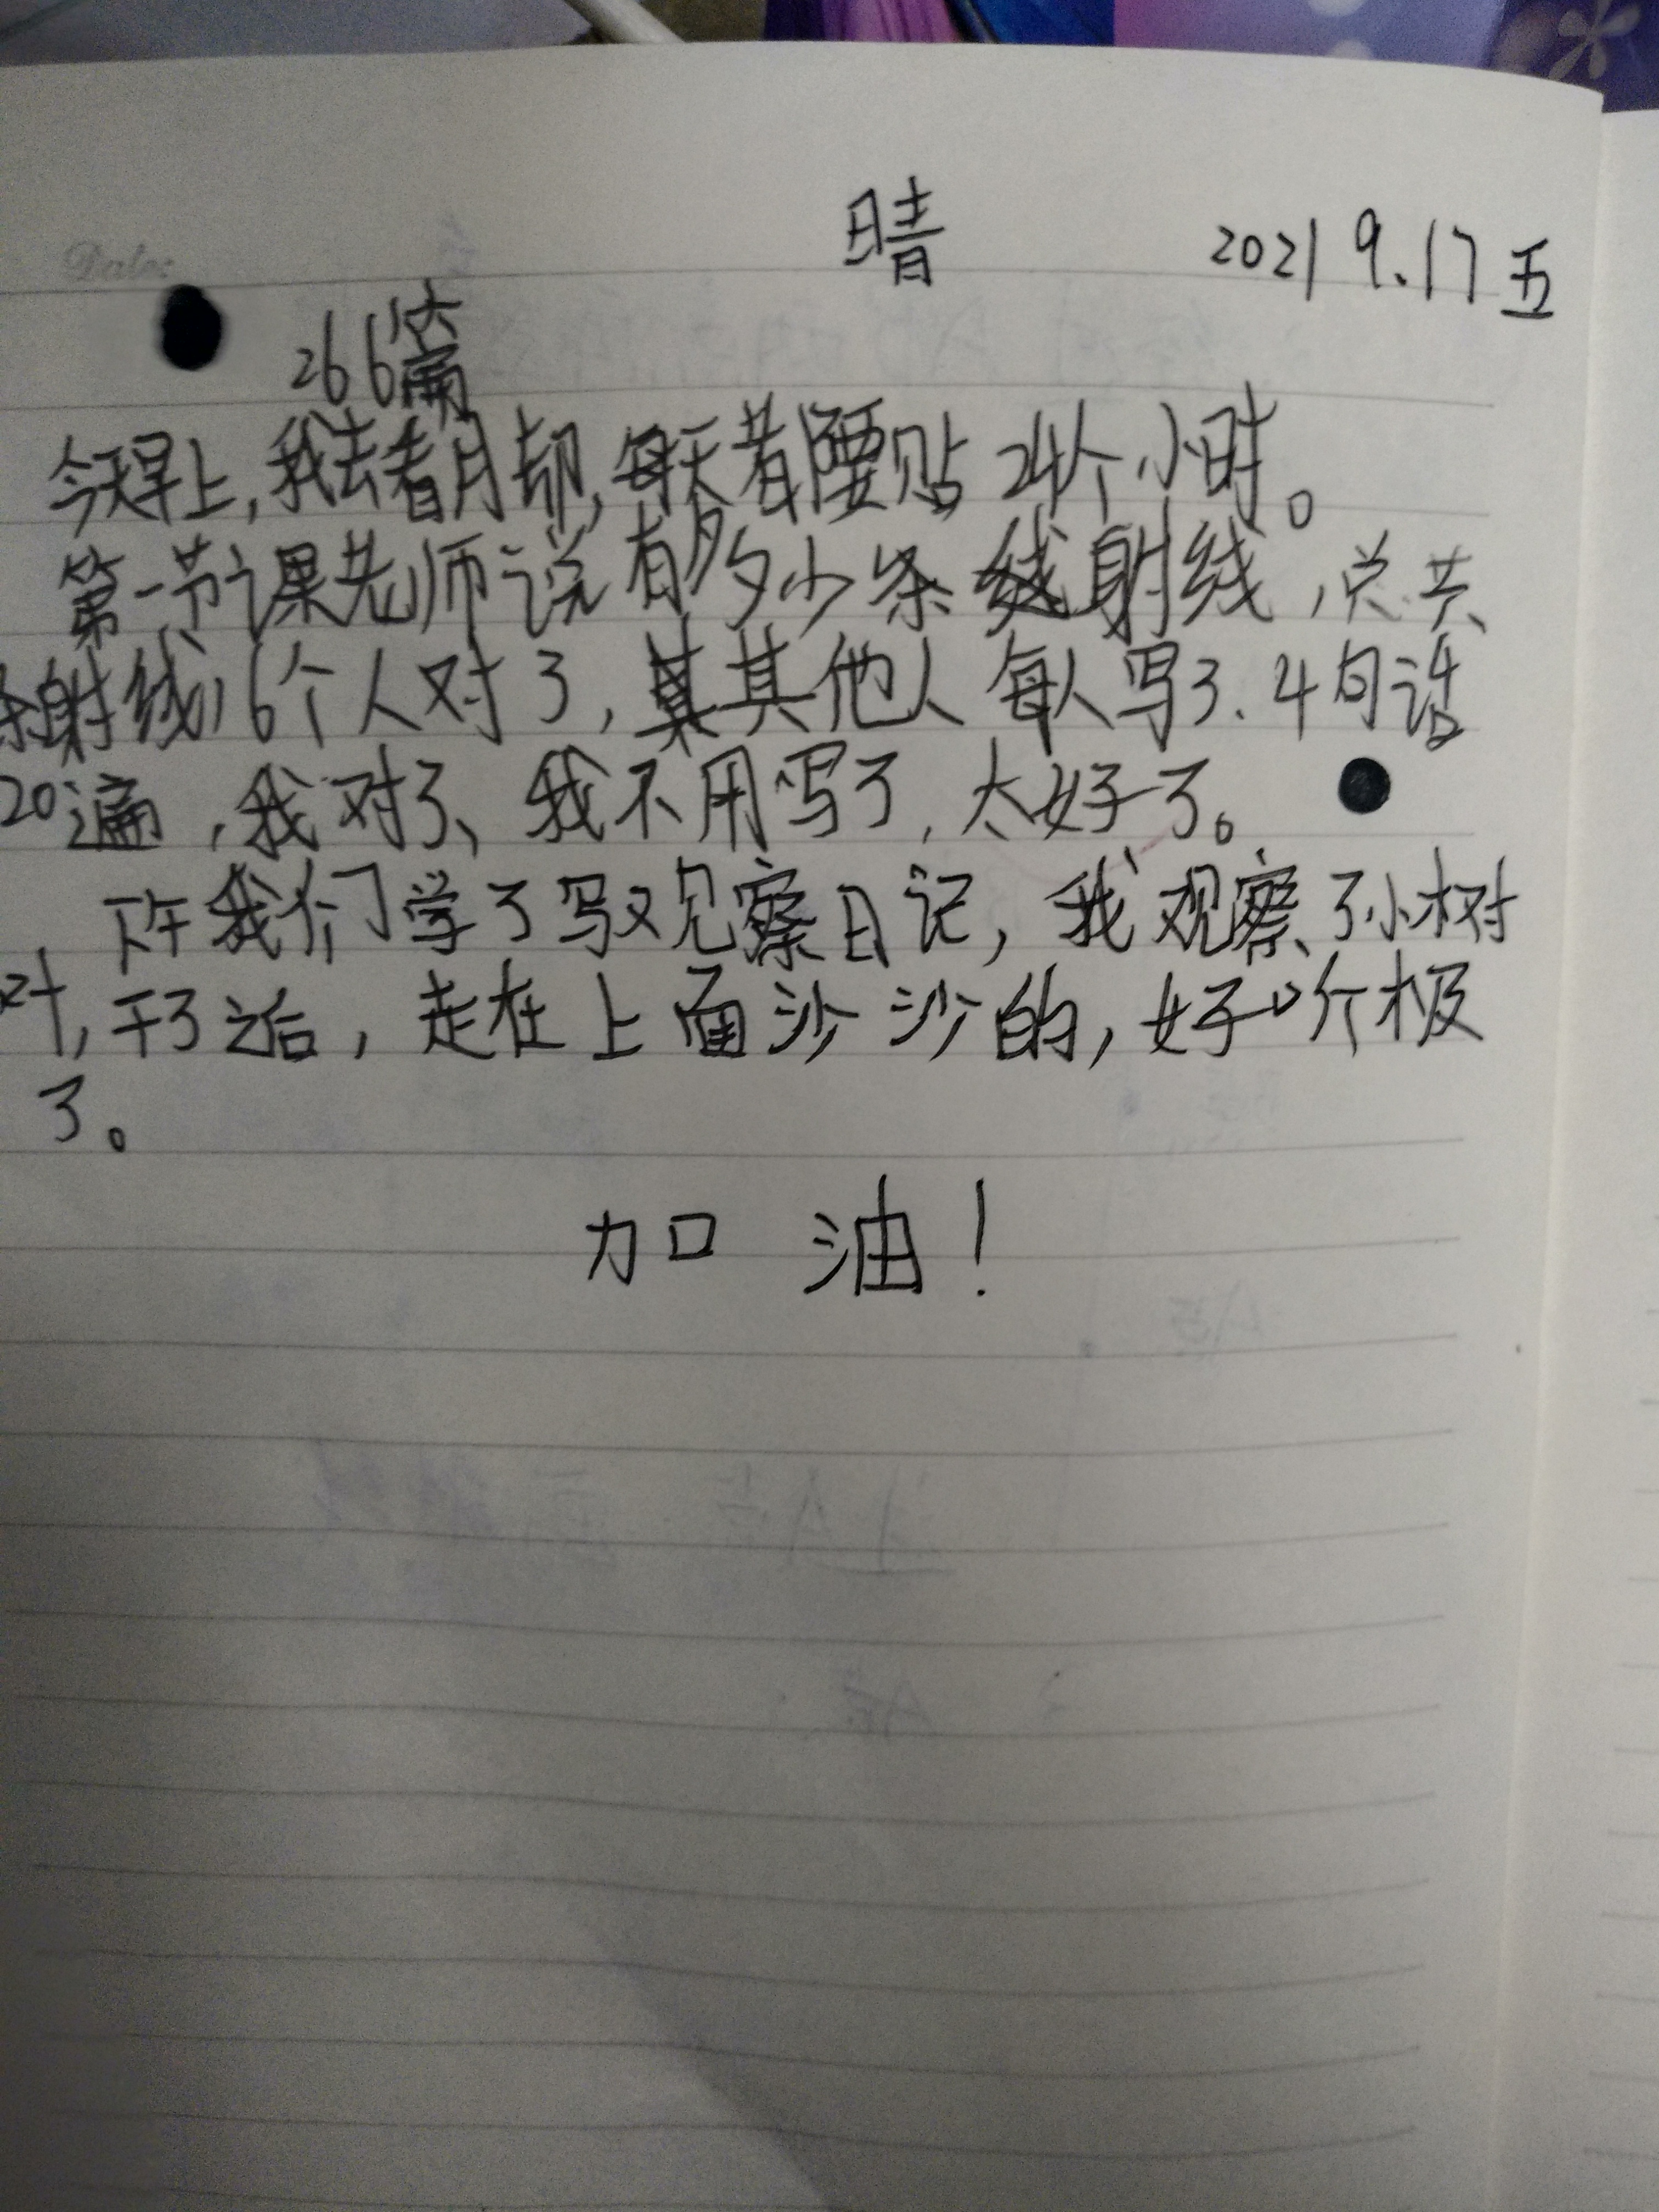 Date:
晴 2021 9.17 五
266篇
今天早上,我去看月却,每天者腰贴24个小时。
第一节课老师说有多少条线射线,总共
射线,6个人对了,其其他人每人写3.4句话
20遍,我对了、我不用写了,太好了。
下午我们学了写观察日记,我观察了小树
叶,干了之后,走在上面沙沙的,好听极
了。
加油!